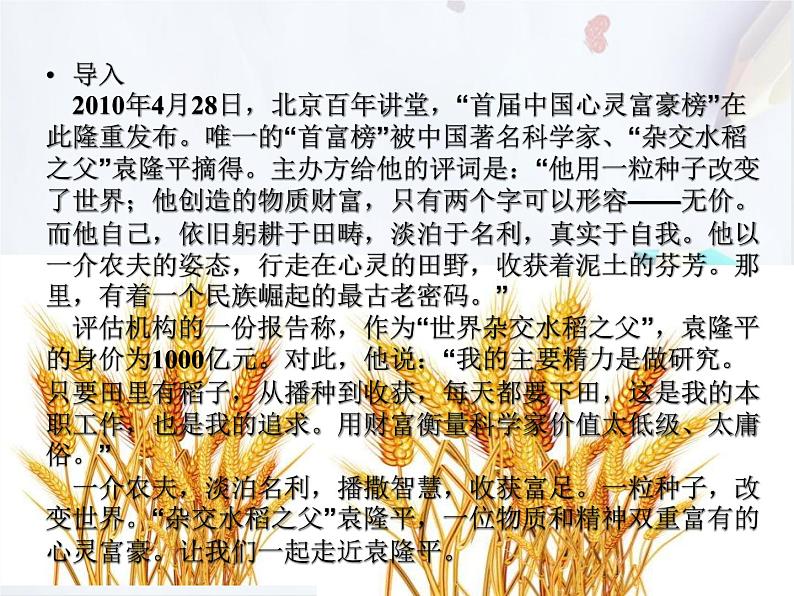 • 导入
2010年4月28日，北京百年讲堂，“首届中国心灵富豪榜”在
此隆重发布。唯一的“首富榜”被中国著名科学家、“杂交水稻
之父”袁隆平摘得。主办方给他的评词是：“他用一粒种子改变
了世界；他创造的物质财富，只有两个字可以形容——无价。
而他自己，依旧躬耕于田畴，淡泊于名利，真实于自我。他以
一介农夫的姿态，行走在心灵的田野，收获着泥土的芬芳。那
里，有着一个民族崛起的最古老密码。”
评估机构的一份报告称，作为“世界杂交水稻之父”，袁隆平
的身价为1000亿元。对此，他说：“我的主要精力是做研究。
只要田里有稻子，从播种到收获，每天都要下田，这是我的本
职工作，也是我的追求。用财富衡量科学家价值太低级、太庸
俗。”
一介农夫，淡泊名利，播撒智慧，收获富足。一粒种子，改
变世界。“杂交水稻之父”袁隆平，一位物质和精神双重富有的
心灵富豪。让我们一起走近袁隆平。